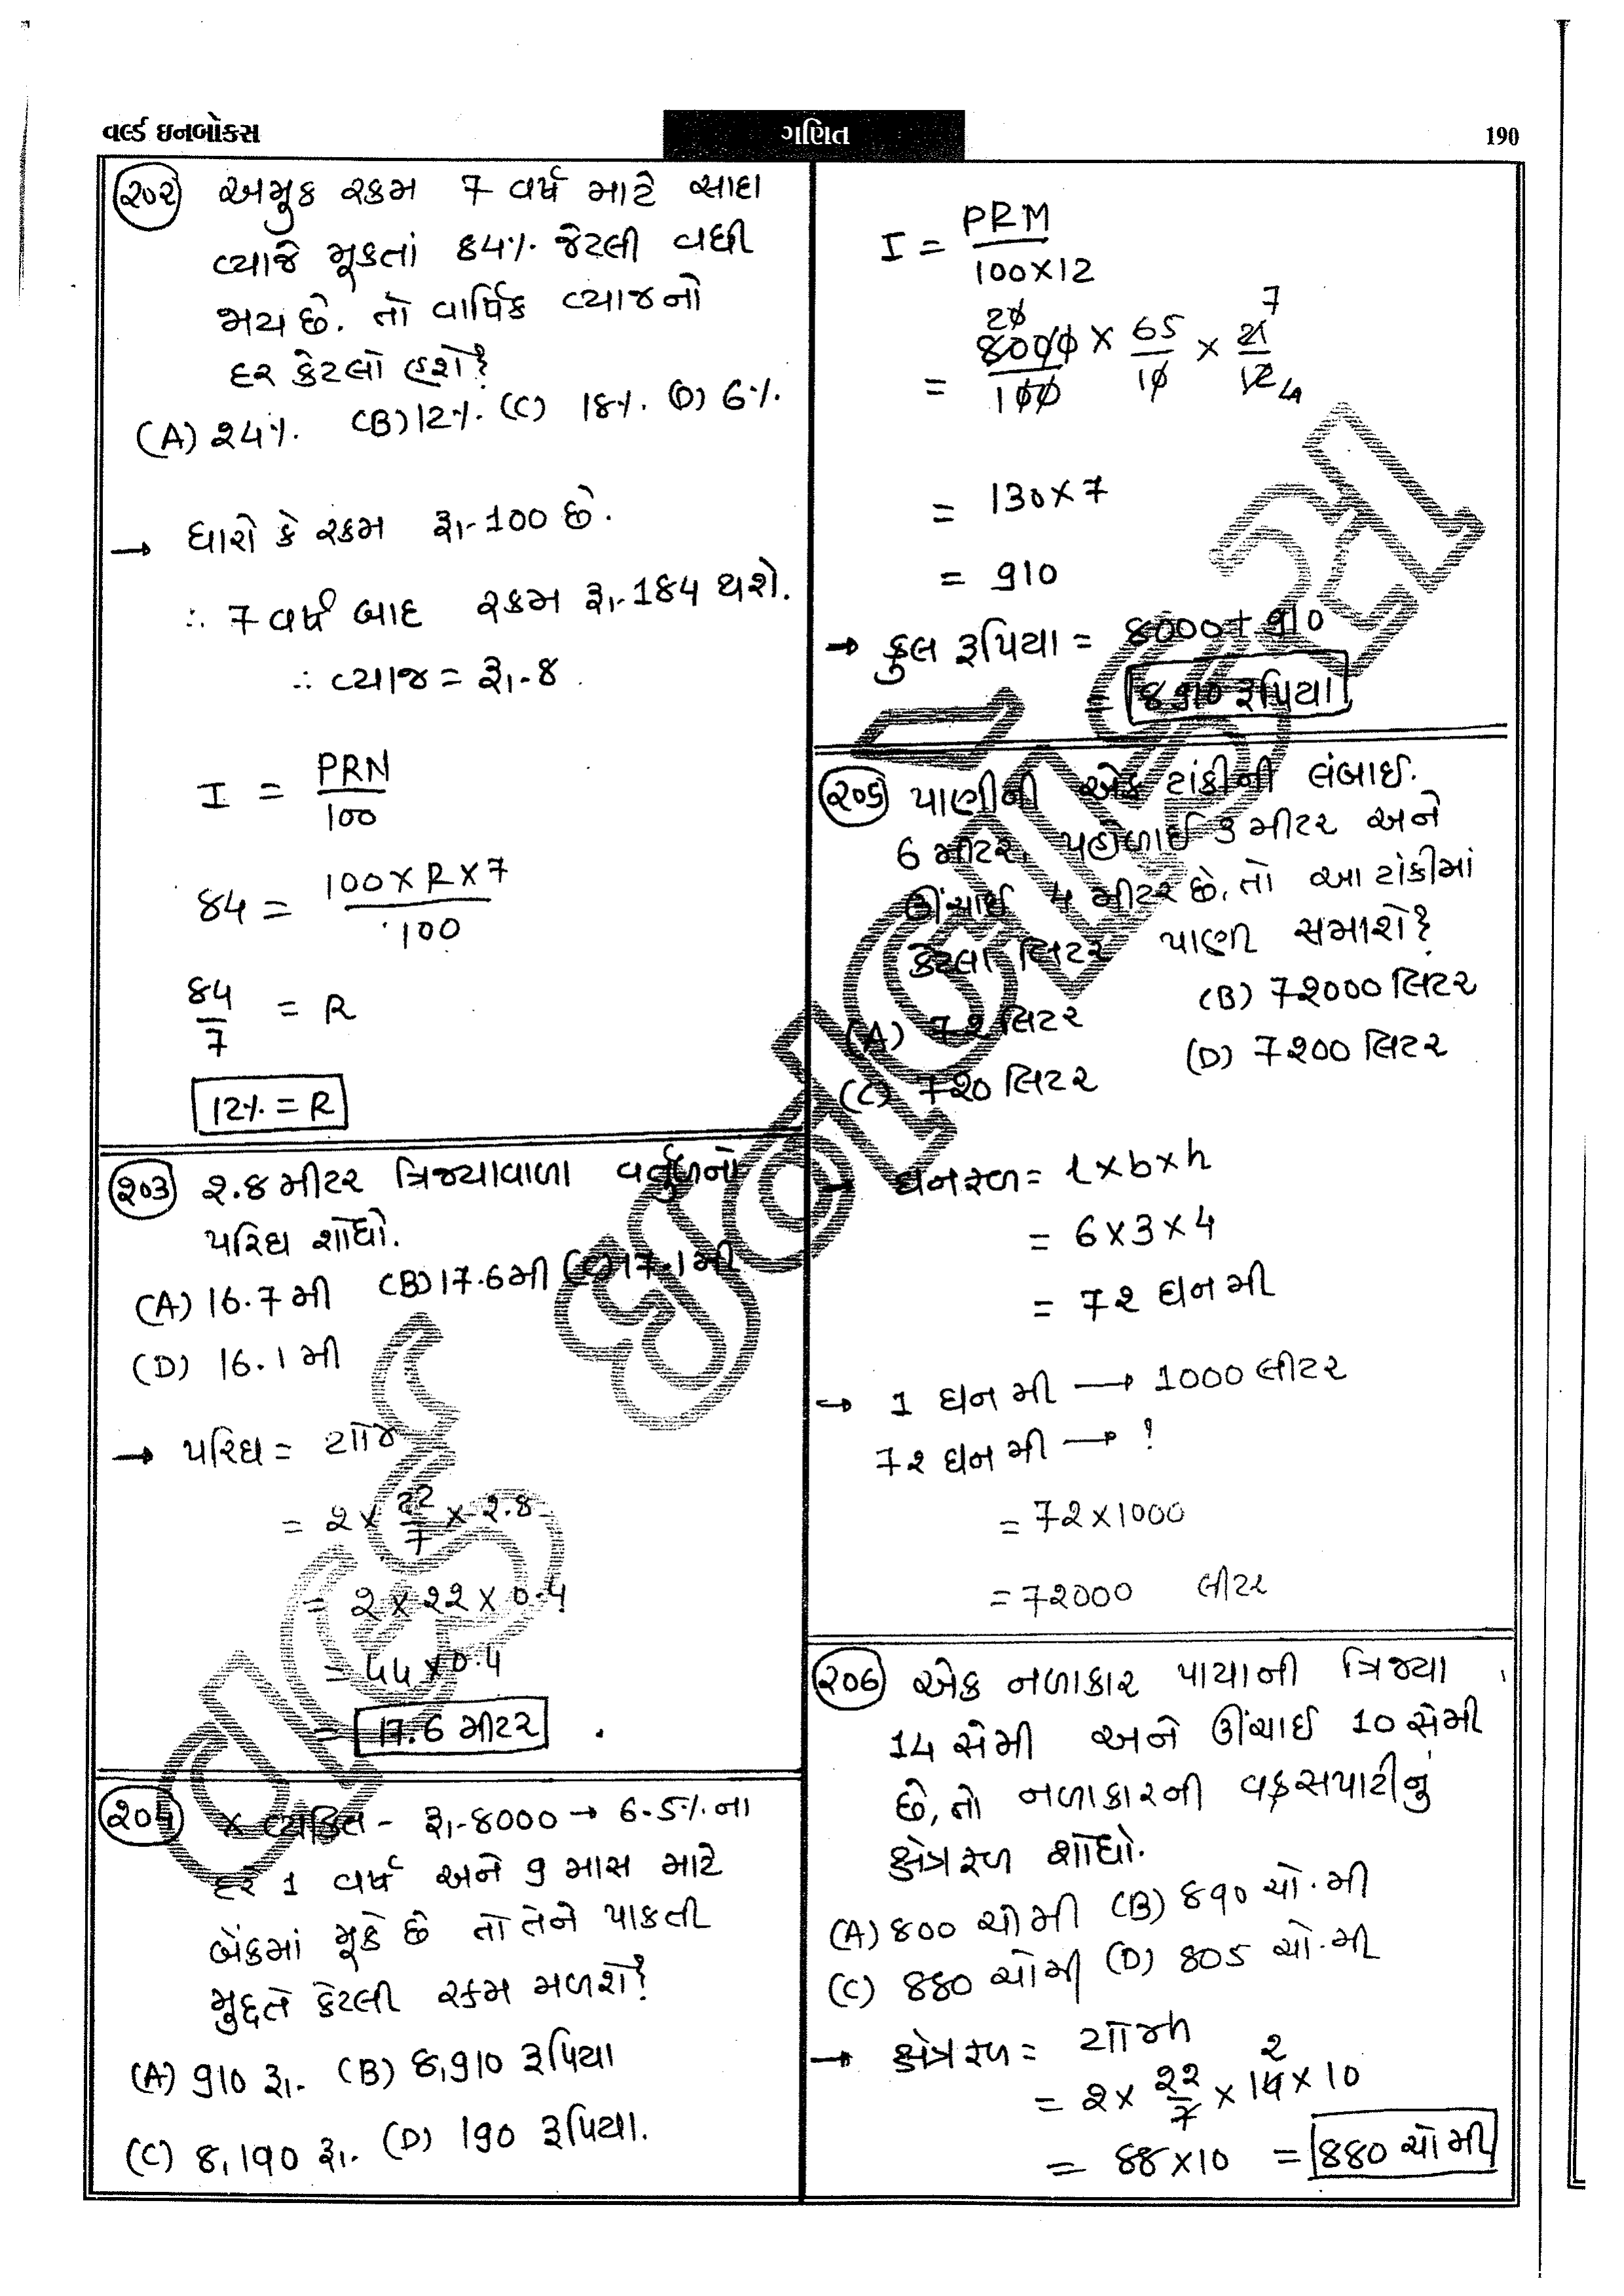 વર્લ્ડ ઇનબોક્સ
ગણિત
190
૨૦૨ અમુક રકમ 7 વર્ષ માટે સાદા
વ્યાજે મૂકતાં ૮4% જેટલી વધી
જાય છે. તો વાર્ષિક વ્યાજનો
દર કેટલો હશે?
(A) ૨4% (B) 12% (C) 18% (D) 6%
→ ધારો કે રકમ રૂા.100 છે.
∴ 7 વર્ષ બાદ રકમ રૂા.184 થશે.
∴ વ્યાજ = રૂા.-૪
I = PRN / 100
84 = 100 × R × 7 / 100
84 / 7 = R
12% = R
૨૦૩ ૨.૪ મીટર ત્રિજ્યાવાળા વર્તુળનો
પરિઘ શોધો.
(A) 16.7 મી (B) 17.6 મી (C) 17.1 મી
(D) 16.1 મી
→ પરિઘ = 2πr
= ૨ × 22/7 × ૨.8
= ૨ × ૨૨ × 0.4
= 44 × 0.4
= 17.6 મીટર
૨૦૪ x વ્યક્તિ - રૂા.8000 → 6.5% ના
દરે 1 વર્ષ અને 9 માસ માટે
બેંકમાં મૂકે છે તો તેને પાકતી
મુદ્દતે કેટલી રકમ મળશે?
(A) 910 રૂા. (B) 8,910 રૂપિયા
(C) 8,190 રૂા. (D) 190 રૂપિયા.
I = PRM / 100×12
= 8000/100 × 65/10 × 21/12
20 7 4
= 130 × 7
= 910
→ કુલ રૂપિયા = 8000 + 910
= 8910 રૂપિયા
૨૦૫ પાણીની એક ટાંકીની લંબાઈ.
6 મીટર, પહોળાઈ 3 મીટર અને
ઊંચાઈ 4 મીટર છે, તો આ ટાંકીમાં
કેટલા લિટર પાણી સમાશે?
(A) 7૨ લિટર (B) 7૨000 લિટર
(C) 7૨0 લિટર (D) 7૨00 લિટર
→ ઘનફળ = l × b × h
= 6 × 3 × 4
= 7૨ ઘન મી
→ 1 ઘન મી → 1000 લીટર
7૨ ઘન મી → ?
= 7૨ × 1000
= 7૨000 લીટર
૨૦6 એક નળાકાર પાયાની ત્રિજ્યા
14 સેમી અને ઊંચાઈ 10 સેમી
છે, તો નળાકારની વક્રસપાટીનું
ક્ષેત્રફળ શોધો.
(A) 800 ચોમી (B) 890 ચો.મી
(C) 880 ચોમી (D) 805 ચો.મી
→ ક્ષેત્રફળ = 2πrh
= ૨ × ૨૨/7 × 14 × 10
2
= 88 × 10 = 880 ચોમી